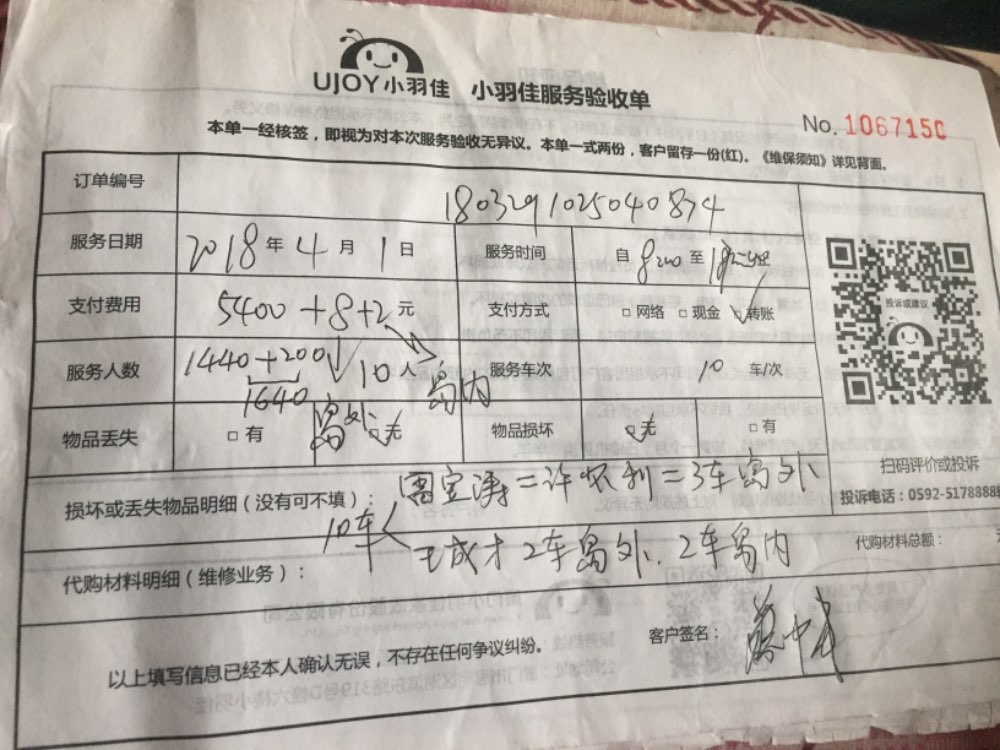 UJOY小羽佳 小羽佳服务验收单
No. 1067150
本单一经核签，即视为对本次服务验收无异议。本单一式两份，客户留存一份(红)。《维保须知》详见背面。
订单编号 1803291025040874
服务日期 2018年4月1日 服务时间 自 8:00 至
支付费用 5400+8+2元 支付方式 □网络 □现金 ☑转账
服务人数 1440+200 10人 岛内 服务车次 10 车/次
1640
物品丢失 □有 岛外 ☑无 物品损坏 ☑无 □有
投诉或建议
扫码评价或投诉
投诉电话：0592-5178888
损坏或丢失物品明细（没有可不填）： =许怀利=3车岛外
10车
王成才2车岛外、2车岛内
代购材料明细（维修业务）： 代购材料总额：
以上填写信息已经本人确认无误，不存在任何争议纠纷。 客户签名：